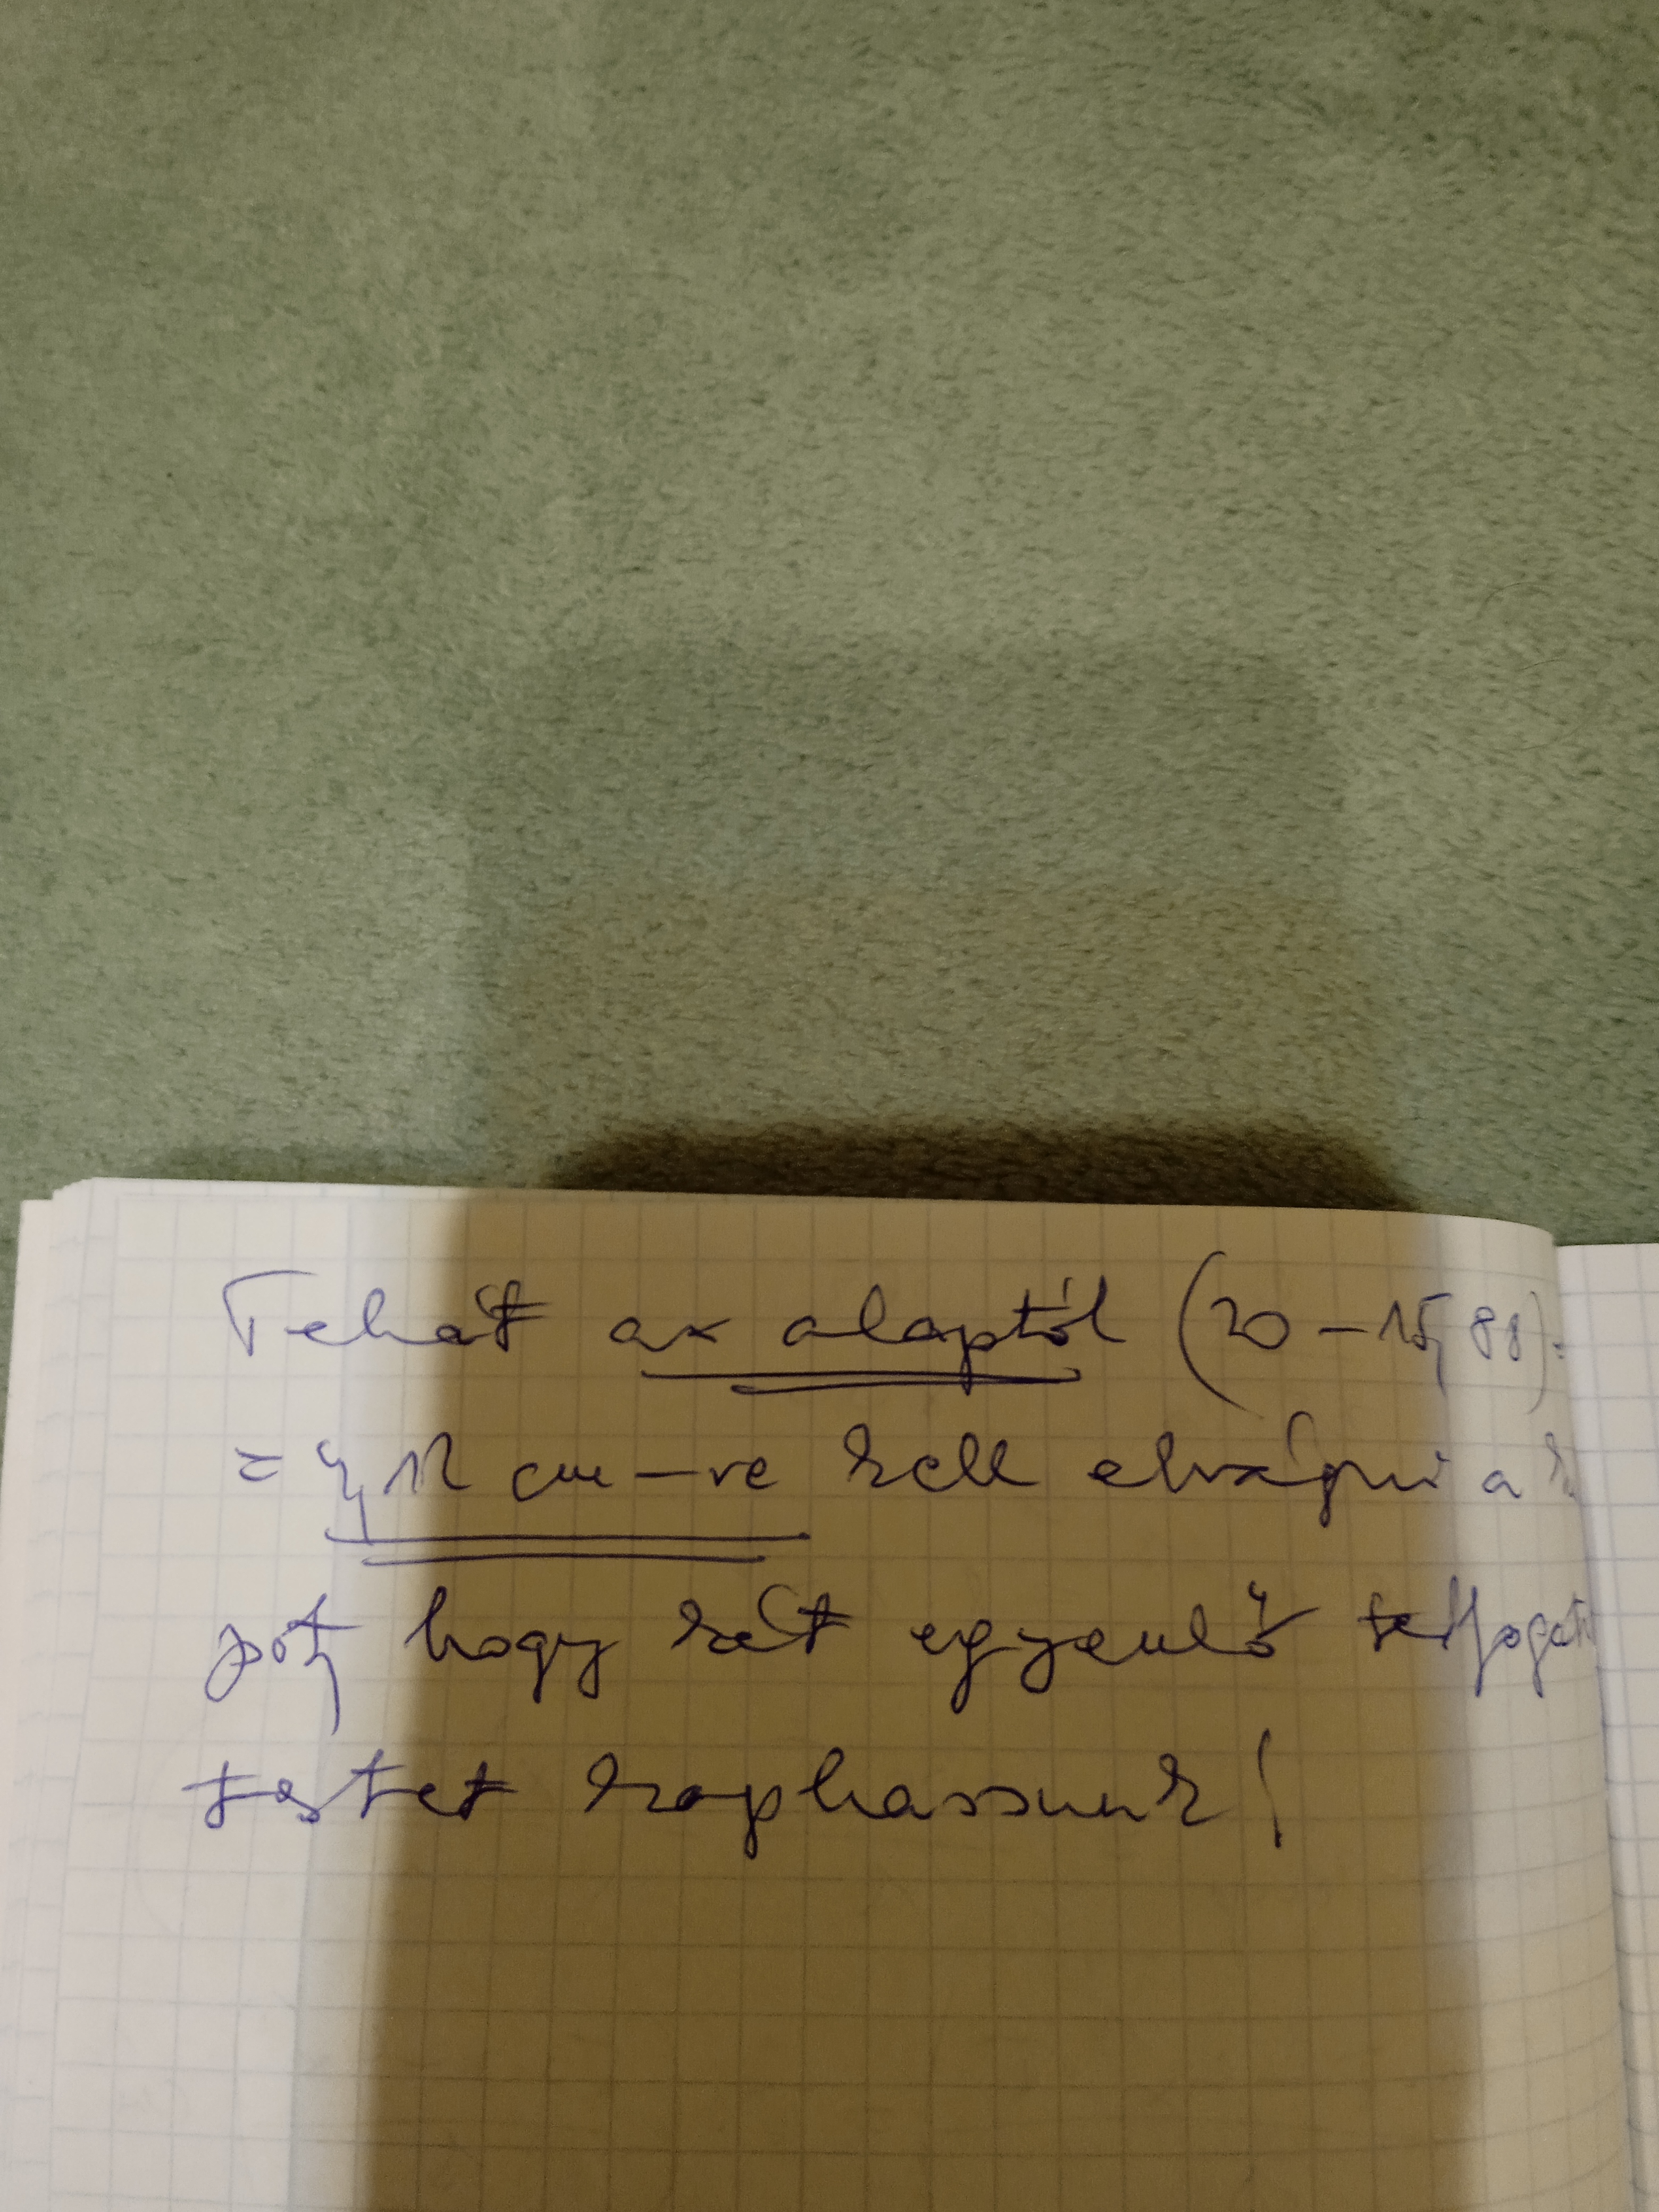 Tehát az alaptól (20 – 15,88) =
= 4,12 cm-re kell elvágni a
pót, hogy két egyenlő térfogatú
testet kaphassunk!